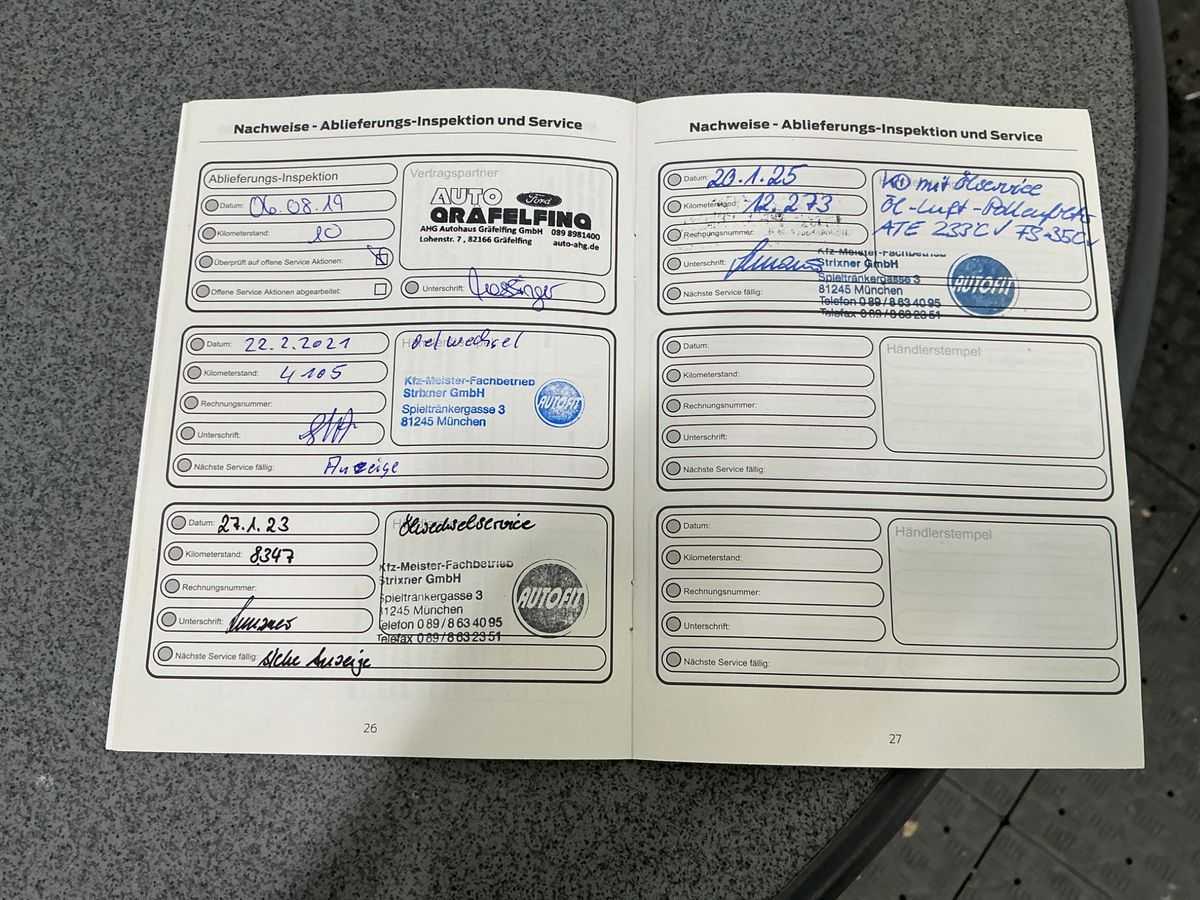 Nachweise - Ablieferungs-Inspektion und Service
Ablieferungs-Inspektion
Datum: 06.08.19
Kilometerstand: 10
Überprüft auf offene Service Aktionen:
Offene Service Aktionen abgearbeitet:
Vertragspartner
AUTO Ford
GRÄFELFING
AHG Autohaus Gräfelfing GmbH 089 8981400
Lohenstr. 7, 82166 Gräfelfing auto-ahg.de
Unterschrift:
Datum: 22.2.2021
Kilometerstand: 4105
Rechnungsnummer:
Unterschrift:
Nächste Service fällig: Anzeige
Oelwechsel
Kfz-Meister-Fachbetrieb
Strixner GmbH
Spieltränkergasse 3
81245 München
AUTOFIT
Datum: 27.1.23
Kilometerstand: 8347
Rechnungsnummer:
Unterschrift:
Nächste Service fällig: siehe Anzeige
Ölwechselservice
Kfz-Meister-Fachbetrieb
Strixner GmbH
Spieltränkergasse 3
81245 München
Telefon 0 89 / 8 63 40 95
Telefax 0 89 / 8 63 23 51
AUTOFIT
26
Nachweise - Ablieferungs-Inspektion und Service
Datum: 20.1.25
Kilometerstand: 12.273
Rechnungsnummer:
Unterschrift:
Nächste Service fällig:
mit Ölservice
Öl-Luft-Pollenfilter
ATE 233°C
Kfz-Meister-Fachbetrieb
Strixner GmbH
Spieltränkergasse 3
81245 München
Telefon 0 89 / 8 63 40 95
Telefax 0 89 / 8 63 23 51
AUTOFIT
Datum:
Kilometerstand:
Rechnungsnummer:
Unterschrift:
Nächste Service fällig:
Händlerstempel
Datum:
Kilometerstand:
Rechnungsnummer:
Unterschrift:
Nächste Service fällig:
Händlerstempel
27